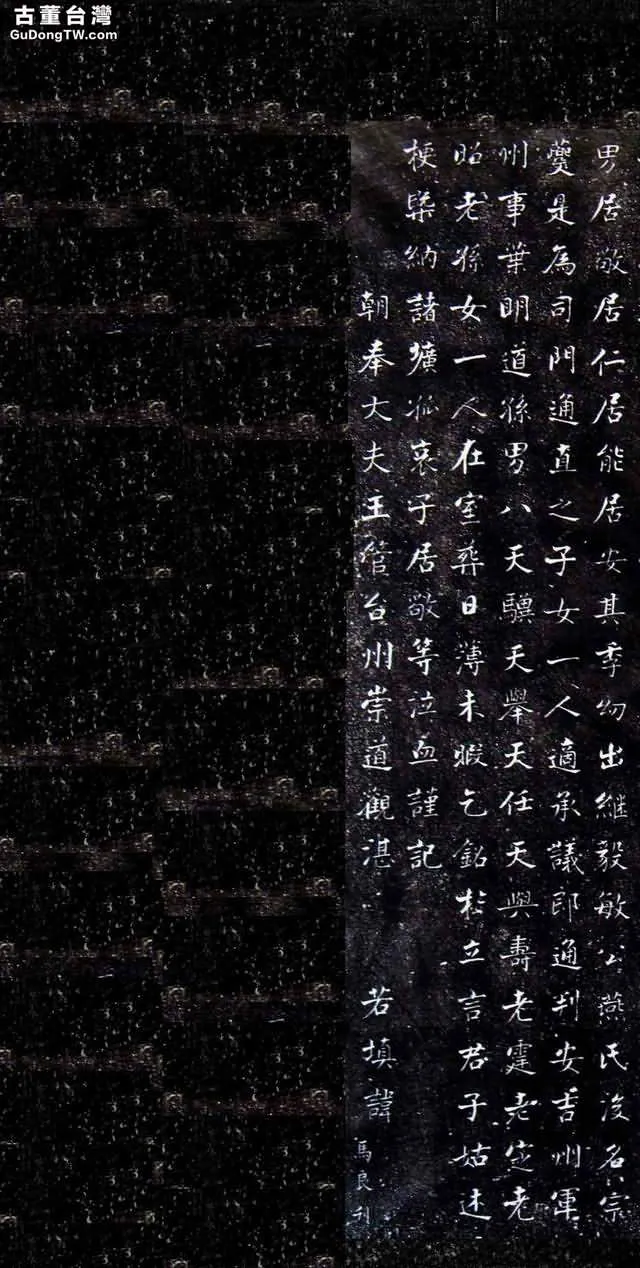 古董台灣
GuDongTW.com
男居敬居仁居能居安其季幼出繼毅敏公燕氏後名宗
夔是為司門通直之子女一人適承議郎通判安吉州軍
州事葉明道孫男八天驥天舉天任天與壽老霆老定老
昭老孫女一人在室葬日薄未暇乞銘於立言君子姑述
梗槩納諸壙孤哀子居敬等泣血謹記
朝奉大夫主管台州崇道觀湛若填諱
馬良刊